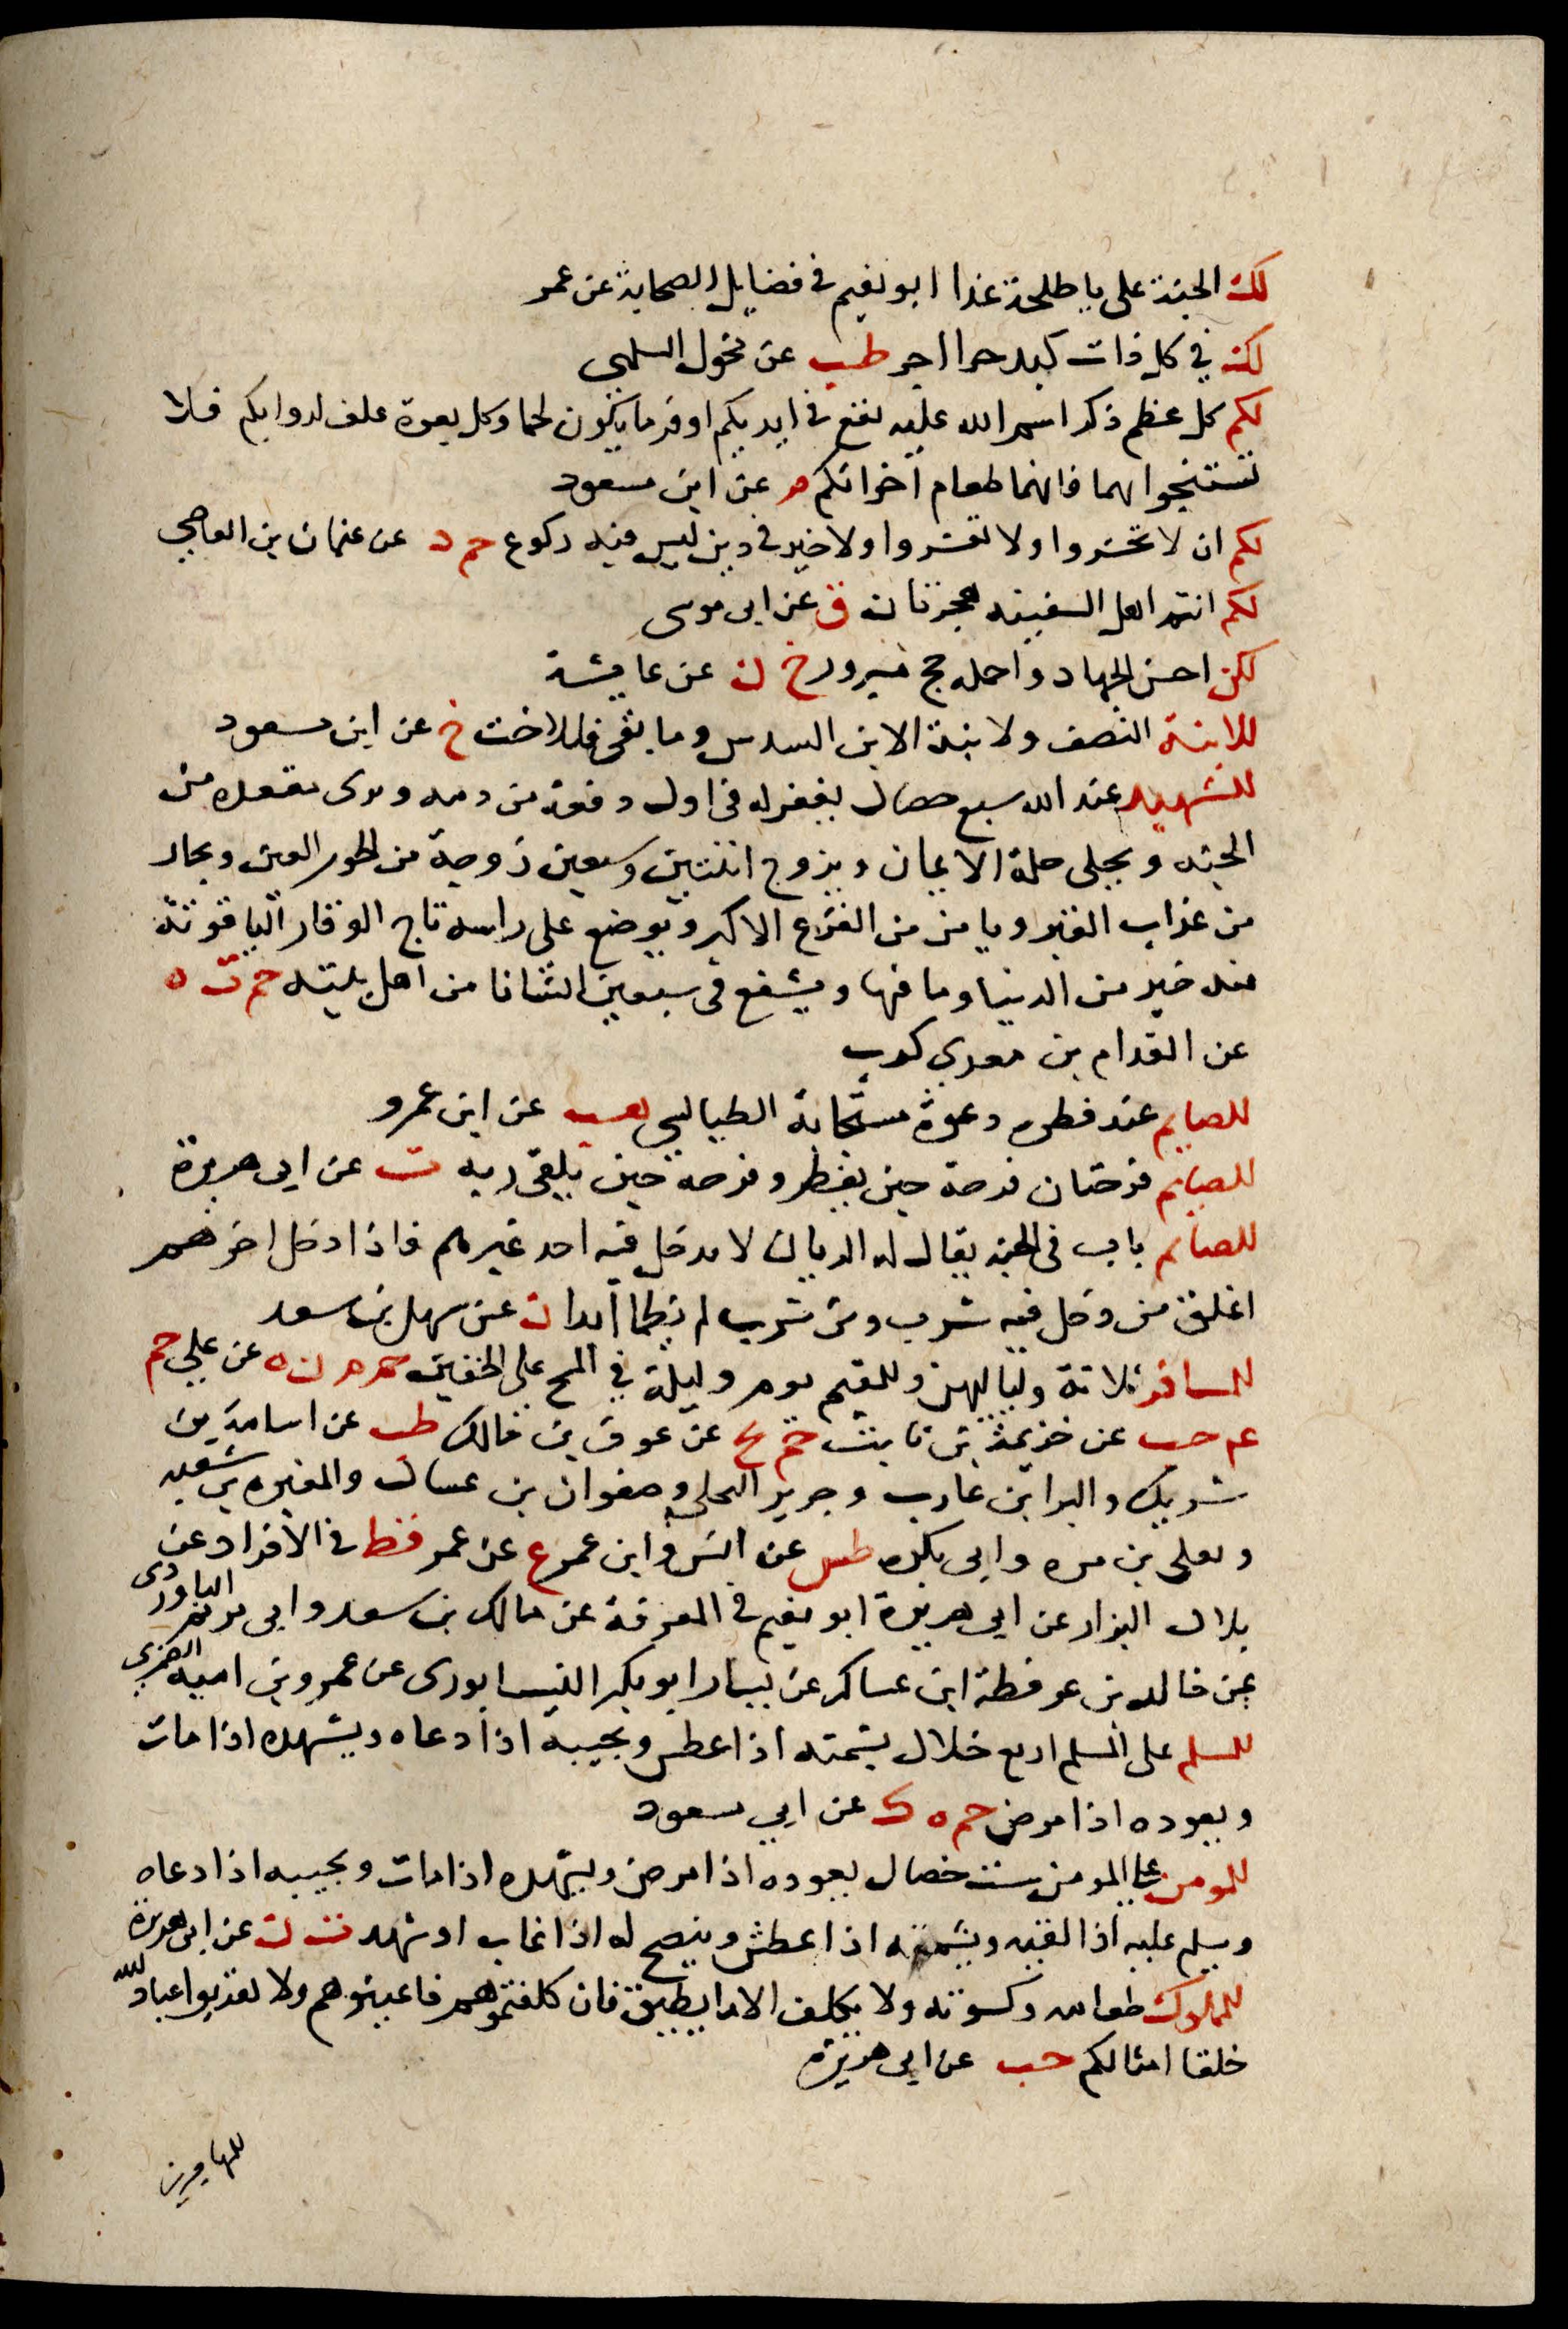 لك الجنة على يا طلحة غدا ابو نعيم فى فضايل الصحابة عن عمر
لك في كل ذات كبد حرا اجر طب عن مخول السلمي
لكم كل عظم ذكر اسم الله عليه يقع فى ايديكم اوفر ما يكون لحما وكل بعرة علف لدوابكم فلا
تستنجوا بهما فانهما طعام اخوانكم م عن ابن مسعود
لكم ان لا تحشروا ولا تعشروا ولا خير فى دين ليس فيه ركوع حم د عن عثمان بن العاصي
لكم انتم اهل السفينه هجرتان ق عن ابى موسى
لكن احسن الجهاد واجمله حج مبرور خ ن عن عايشة
للابنة النصف ولابنة الابن السدس وما بقى فللاخت خ عن ابن مسعود
للشهيد عند الله سبع خصال يغفر له فى اول دفعة من دمه ويرى مقعده من
الجنه ويحلى حلة الايمان ويزوج اثنتين وسبعين زوجة من الحور العين ويجار
من عذاب القبر ويامن من الفزع الاكبر ويوضع على راسه تاج الوقار الياقوتة
منه خير من الدنيا وما فيها ويشفع فى سبعين انسانا من اهل بيته حم ت ه
عن المقدام بن معدي كرب
للصايم عند فطره دعوة مستجابة الطيالسي هب عن ابن عمرو
للصايم فرحتان فرحة حين يفطر وفرحة حين يلقى ربه ت عن ابى هريرة
للصايم باب فى الجنه يقال له الريان لا يدخل فيه احد غيرهم فاذا دخل اخرهم
اغلق من دخل فيه شرب ومن شرب لم يظما ابدا ن عن سهل بن سعد
للمسافر ثلاثة ولياليهن وللمقيم يوم وليلة في المسح على الخفين حم م ن ه عن علي حم
عه حب عن خزيمة بن ثابت حم تخ عن عوف بن مالك طب عن اسامة بن
شريك والبرا بن عازب وجرير البجلي وصفوان بن عسال والمغيره بن شعبه
ويعلى بن مره وابى بكره طس عن انس وابن عمر ع عن عمر قط فى الافراد عن
بلال البزار عن ابى هريرة ابو نعيم فى المعرفة عن مالك بن سعد وابى مريم الباوردى
عن خالد بن عرفطة ابن عساكر عن يسار ابو بكر النيسابورى عن عمرو بن اميه الضمري
للمسلم على المسلم اربع خلال يشمته اذا عطس ويجيبه اذا دعاه ويشهده اذا مات
ويعوده اذا مرض حم ه ك عن ابي مسعود
للمومن على المومن ست خصال يعوده اذا مرض ويشهده اذا مات ويجيبه اذا دعاه
ويسلم عليه اذا لقيه ويشمته اذا عطش وينصح له اذا غاب او شهد ت ن عن ابى هريرة
للمملوك طعامه وكسوته ولا يكلف الا ما يطيق فان كلفتموهم فاعينوهم ولا تعذبوا عباد الله
خلقا امثالكم حب عن ابى هريرة
للمهاجرين